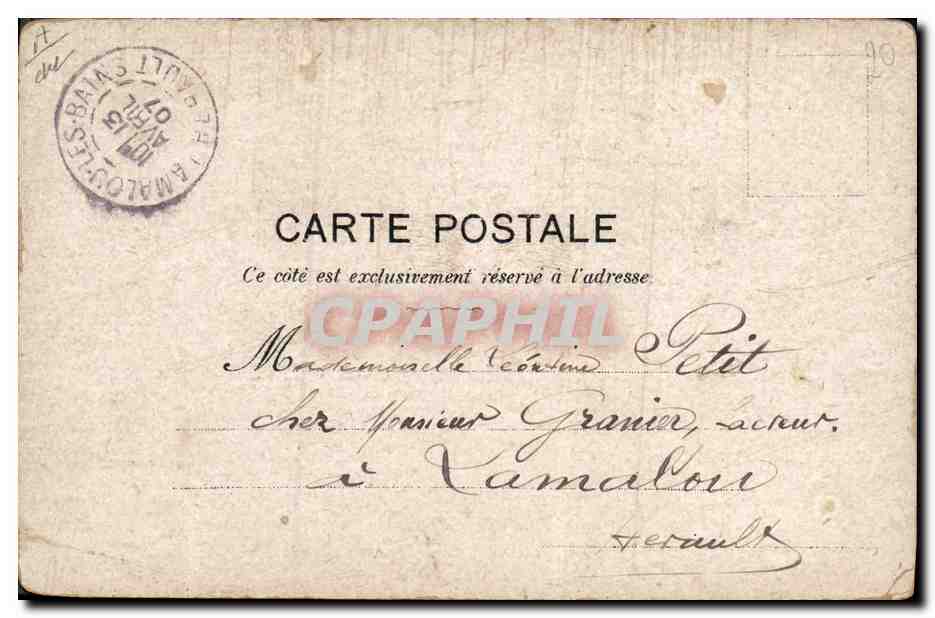 A
che
20
LAMALOU-LES-BAINS HERAULT
10H 13
AVRIL
07
CARTE POSTALE
Ce côté est exclusivement réservé à l'adresse
CPAPHIL
Mademoiselle Léontine Petit
chez Monsieur Granier, facteur.
à Lamalou
Herault